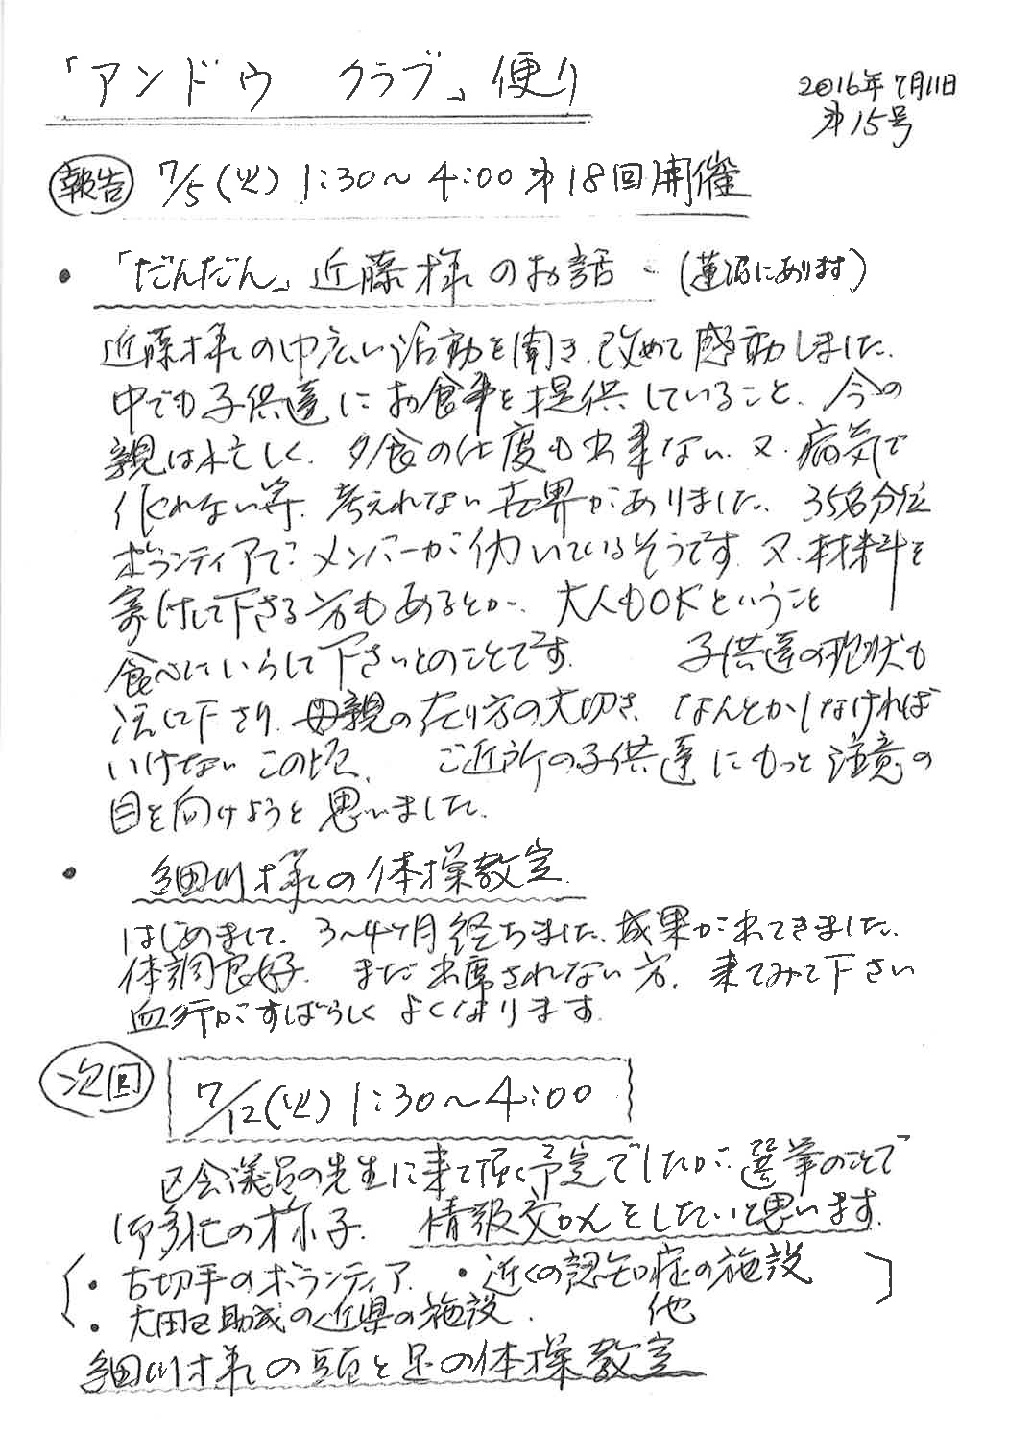 「アンドウ クラブ」便り
2016年7月11日
第15号
報告 7/5(火) 1:30〜4:00 第18回開催
・「だんだん」近藤様のお話 (蓮沼にあります)
近藤様の巾広い活動を聞き、改めて感動しました。
中でも子供達にお食事を提供していること、今の
親は忙しく、夕食の仕度も出来ない、又、病気で
作れない等、考えれない世界がありました。35名分位
ボランティアで、メンバーが働いているそうです。又、材料を
寄付して下さる方もあるとか、大人もOKということ
食べにいらして下さいとのことです。 子供達の現状も
話して下さり、母親の在り方の大切さ、なんとかしなければ
いけないこの頃、 ご近所の子供達にもっと注意の
目を向けようと思いました。
・ 細川様の体操教室
はじめまして、3〜4ヶ月経ちました、成果が出てきました。
体調良好、まだ出席されない方、来てみて下さい
血行がすばらしくよくなります。
次回 7/12(火) 1:30〜4:00
区会議員の先生に来て頂く予定でしたが、選挙のことで
御多忙の様子、情報交かんをしたいと思います。
・古切手のボランティア、 ・近くの認知症の施設
・大田区助成の近県の施設、 他
細川様の頭と足の体操教室